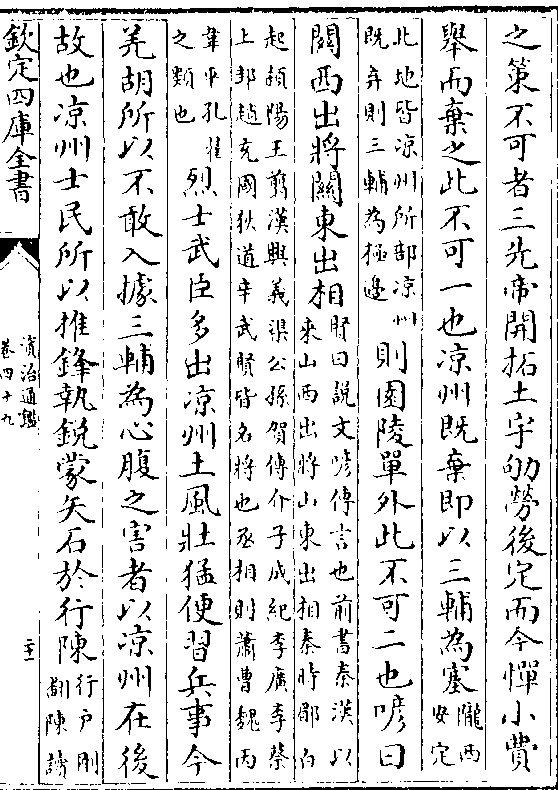 之策不可者三先帝開拓土宇劬勞後定而今憚小費
舉而棄之此不可一也凉州既棄即以三輔為塞隴西
安定
北地皆凉州所部凉州
既弃則三輔為極邊則園陵單外此不可二也喭曰
關西出將關東出相賢曰説文喭傳言也前書秦漢以
來山西出將山東出相秦時郿白
起頻陽王翦漢興義渠公孫賀傅介子成紀李廣李蔡
上邽趙充國狄道辛武賢皆名將也丞相則蕭曹魏丙
韋平孔翟
之類也烈士武臣多出凉州土風壯猛便習兵事今
羌胡所以不敢入據三輔為心腹之害者以凉州在後
故也凉州士民所以推鋒執銳蒙矢石於行陳行户剛
翻陳讀
欽定四庫全書
資治通鑑
卷四十九